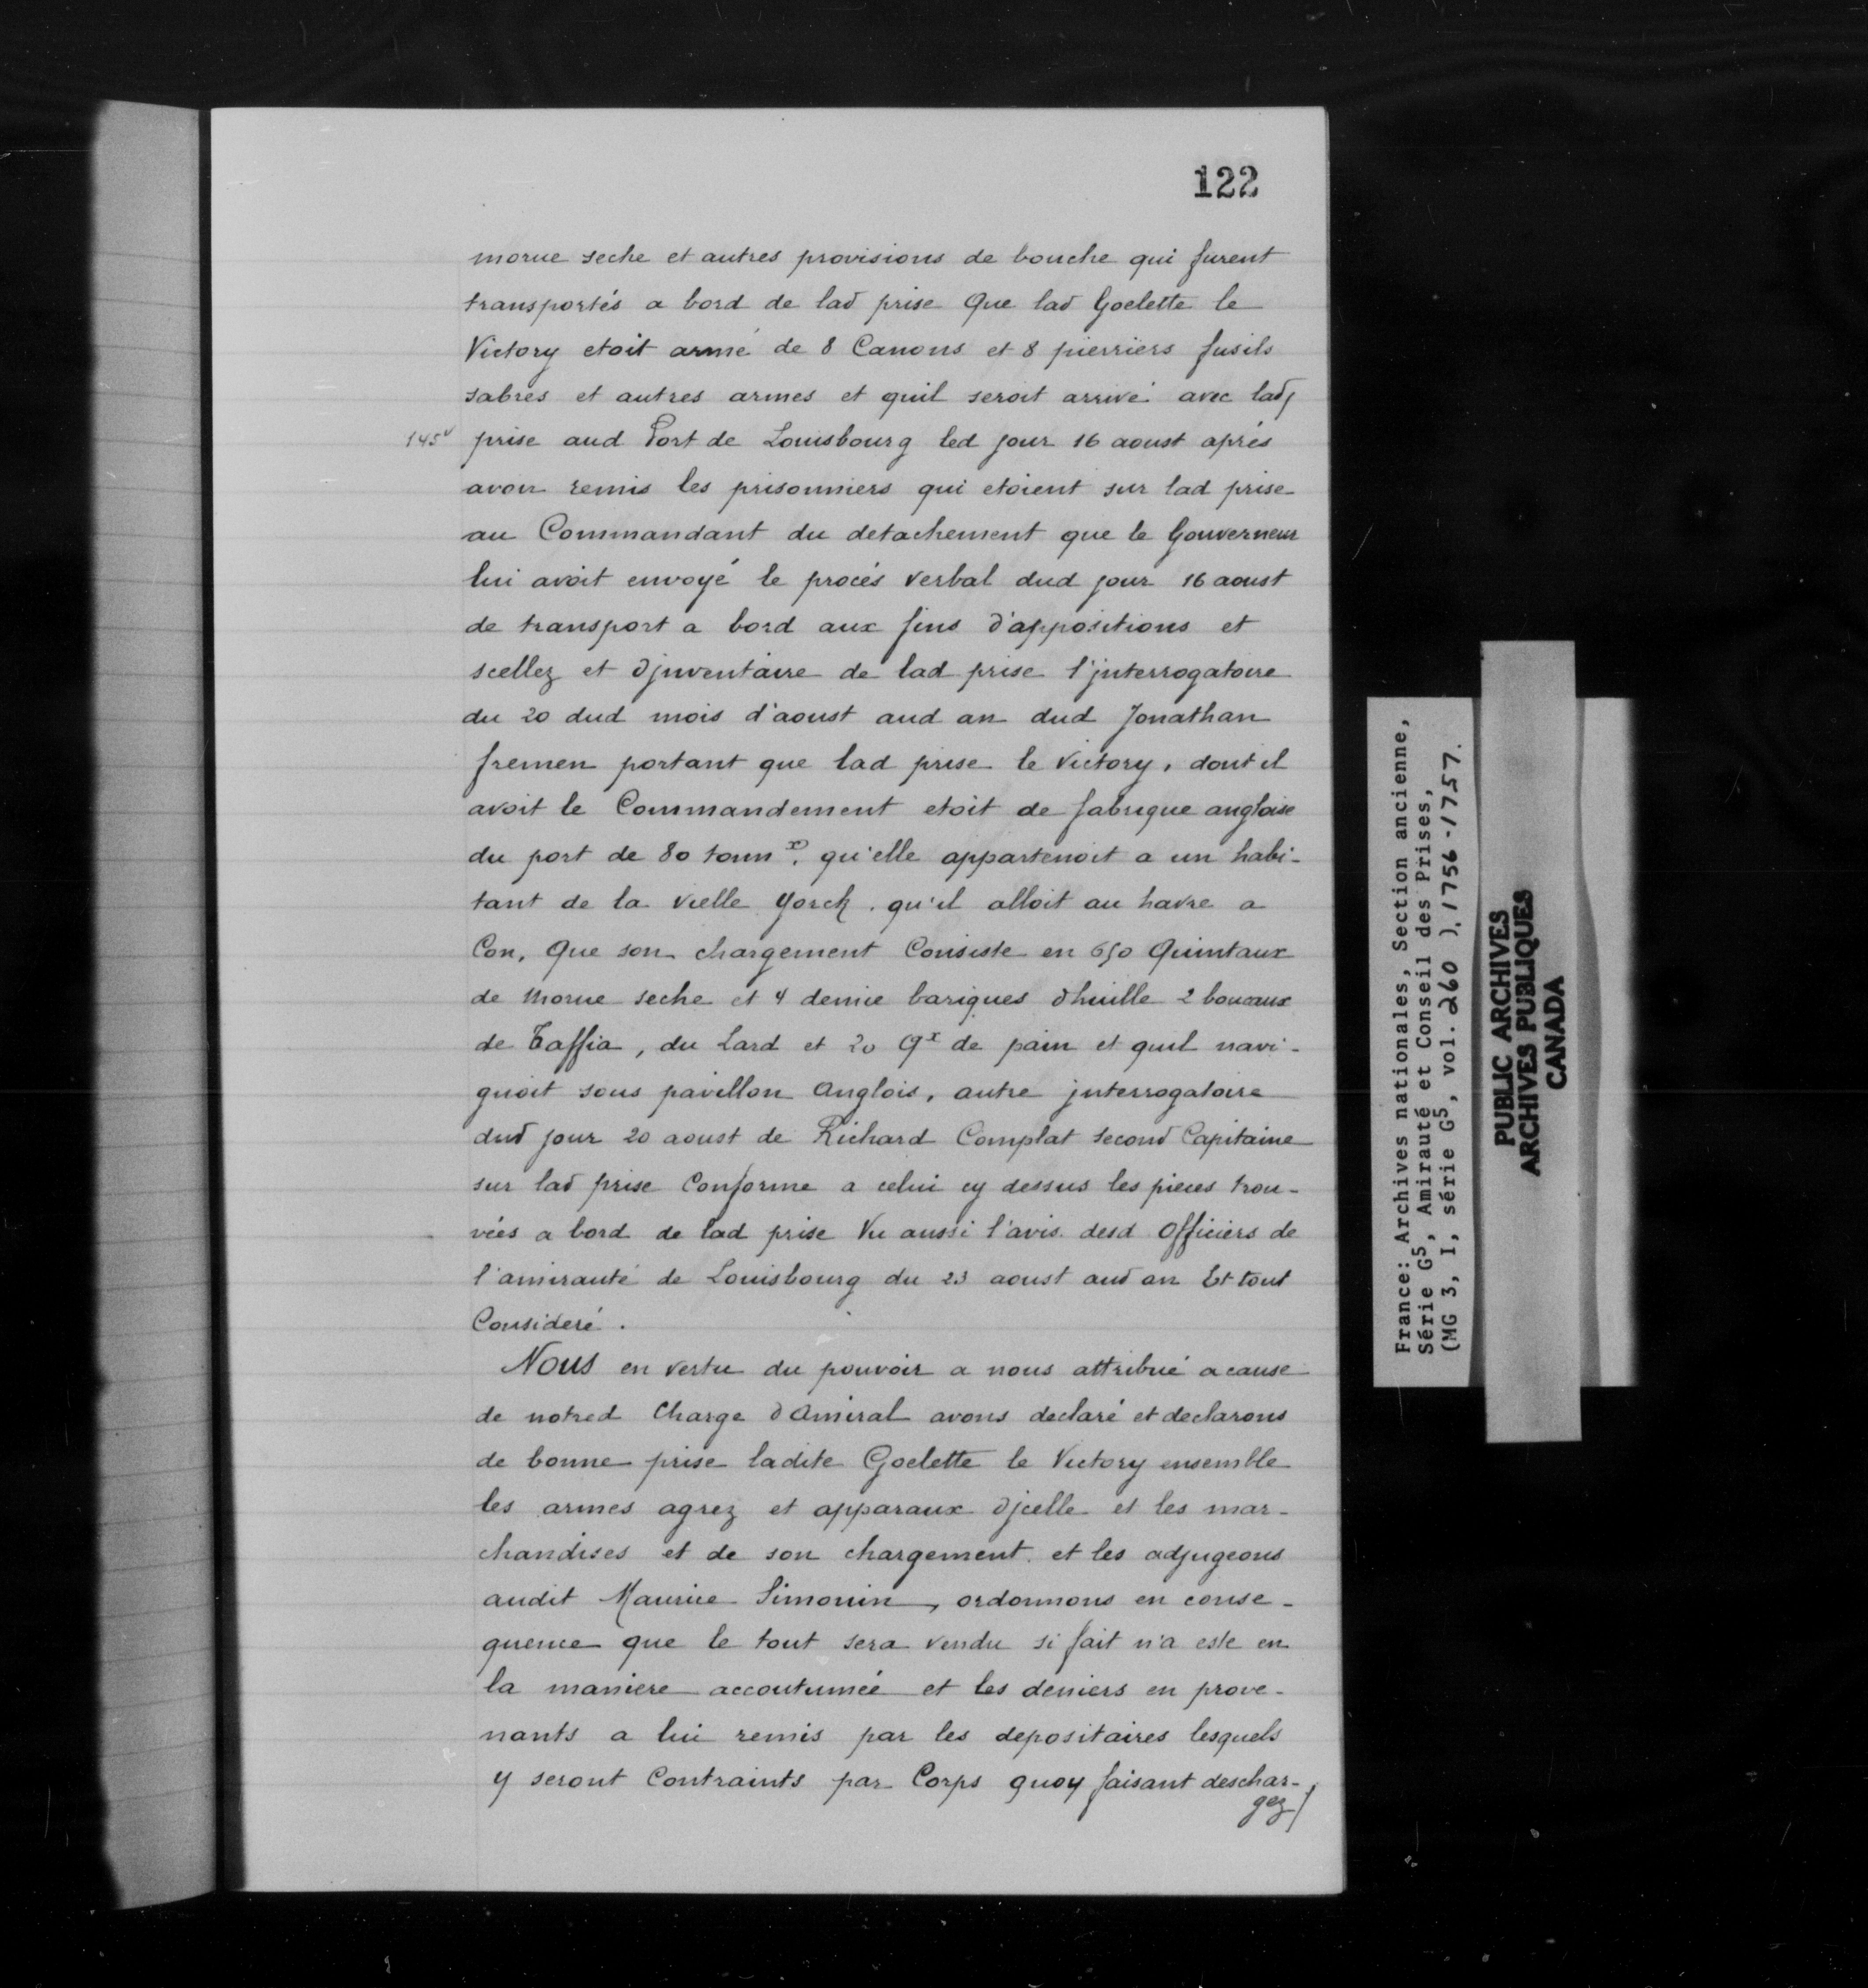 122
morue seche et autres provisions de bouche qui furent
transportés a bord de lad prise Que lad Goelette le
Victory etoit armé de 8 Canons et 8 pierriers fusils
sabres et autres armes et quil seroit arrivé avec lad
145v prise aud Port de Louisbourg led jour 16 aoust aprés
avoir remis les prisonniers qui etoient sur lad prise
au Commandant du detachement que le Gouverneur
lui avoit envoyé le procés verbal dud jour 16 aoust
de transport a bord aux fins d'appositions et
scellez et djnventaire de lad prise l'jnterrogatoire
du 20 dud mois d'aoust aud an dud Jonathan
fremen portant que lad prise le Victory, dont il
avoit le Commandement etoit de fabrique angloise
du port de 80 tonnx. qu'elle appartenoit a un habi-
tant de la vielle yorck. qu'il alloit au havre a
Con, Que son chargement Consiste en 650 Quintaux
de Morue seche et 4 demie bariques dhuille 2 boucaux
de Taffia, du Lard et 20 qx de pain et quil navi-
guoit sous pavillon anglois, autre jnterrogatoire
dud jour 20 aoust de Richard Complat second Capitaine
sur lad prise Conforme a celui cy dessus les pieces trou-
vées a bord de lad prise Vu aussi l'avis desd Officiers de
l'amirauté de Louisbourg du 23 aoust aud an Et tout
Consideré.
Nous en vertu du pouvoir a nous attribué a cause
de notred Charge d'Amiral avons declaré et declarons
de bonne prise ladite Goelette le Victory ensemble
les armes agrez et apparaux djcelle et les mar-
chandises et de son chargement. et les adjugeons
audit Maurice Simonin, ordonnons en conse-
quence que le tout sera vendu si fait n'a este en
la maniere accoutumée et les deniers en prove-
nants a lui remis par les depositaires lesquels
y seront Contraints par Corps quoy faisant deschar-
gez/
France: Archives nationales, Section ancienne,
Série G5, Amirauté et Conseil des Prises,
(MG 3, I, série G5, vol. 260 ). 1756-1757.
PUBLIC ARCHIVES
ARCHIVES PUBLIQUES
CANADA